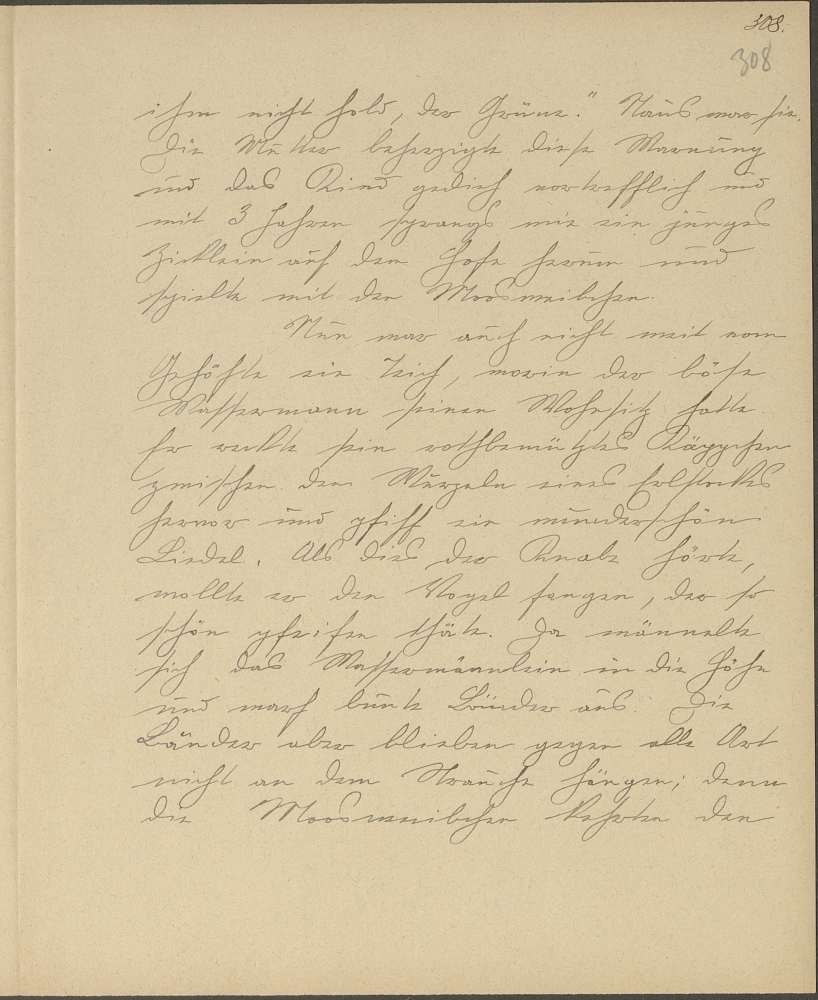 308.
308
ihm nicht hold, der Grüne." Naus war sie.
Die Mutter beherzigte diese Warnung
und das Kind gedieh vortrefflich und
mit 3 Jahren sprangs wie ein junges
Zicklein auf dem Hofe herum und
spielte mit den Moosweibchen.
Nun war auch nicht weit vom
Gehöfte ein Teich, worin der böse
Wassermann seinen Wohnsitz hatte.
Er reckte sein rothbemütztes Käppchen
zwischen den Wurzeln eines Erlstockes
hervor und pfiff ein wunderschön
Liedel. Als dies der Knabe hörte,
wollte er den Vogel fangen, der so
schön pfeifen thäte. Da
sich das Wassermännlein in die Höhe
und warf bunte Bänder aus. Die
Bänder aber blieben gegen alle Art
nicht an dem Strauche hängen; denn
die Moosweibchen kehrten den